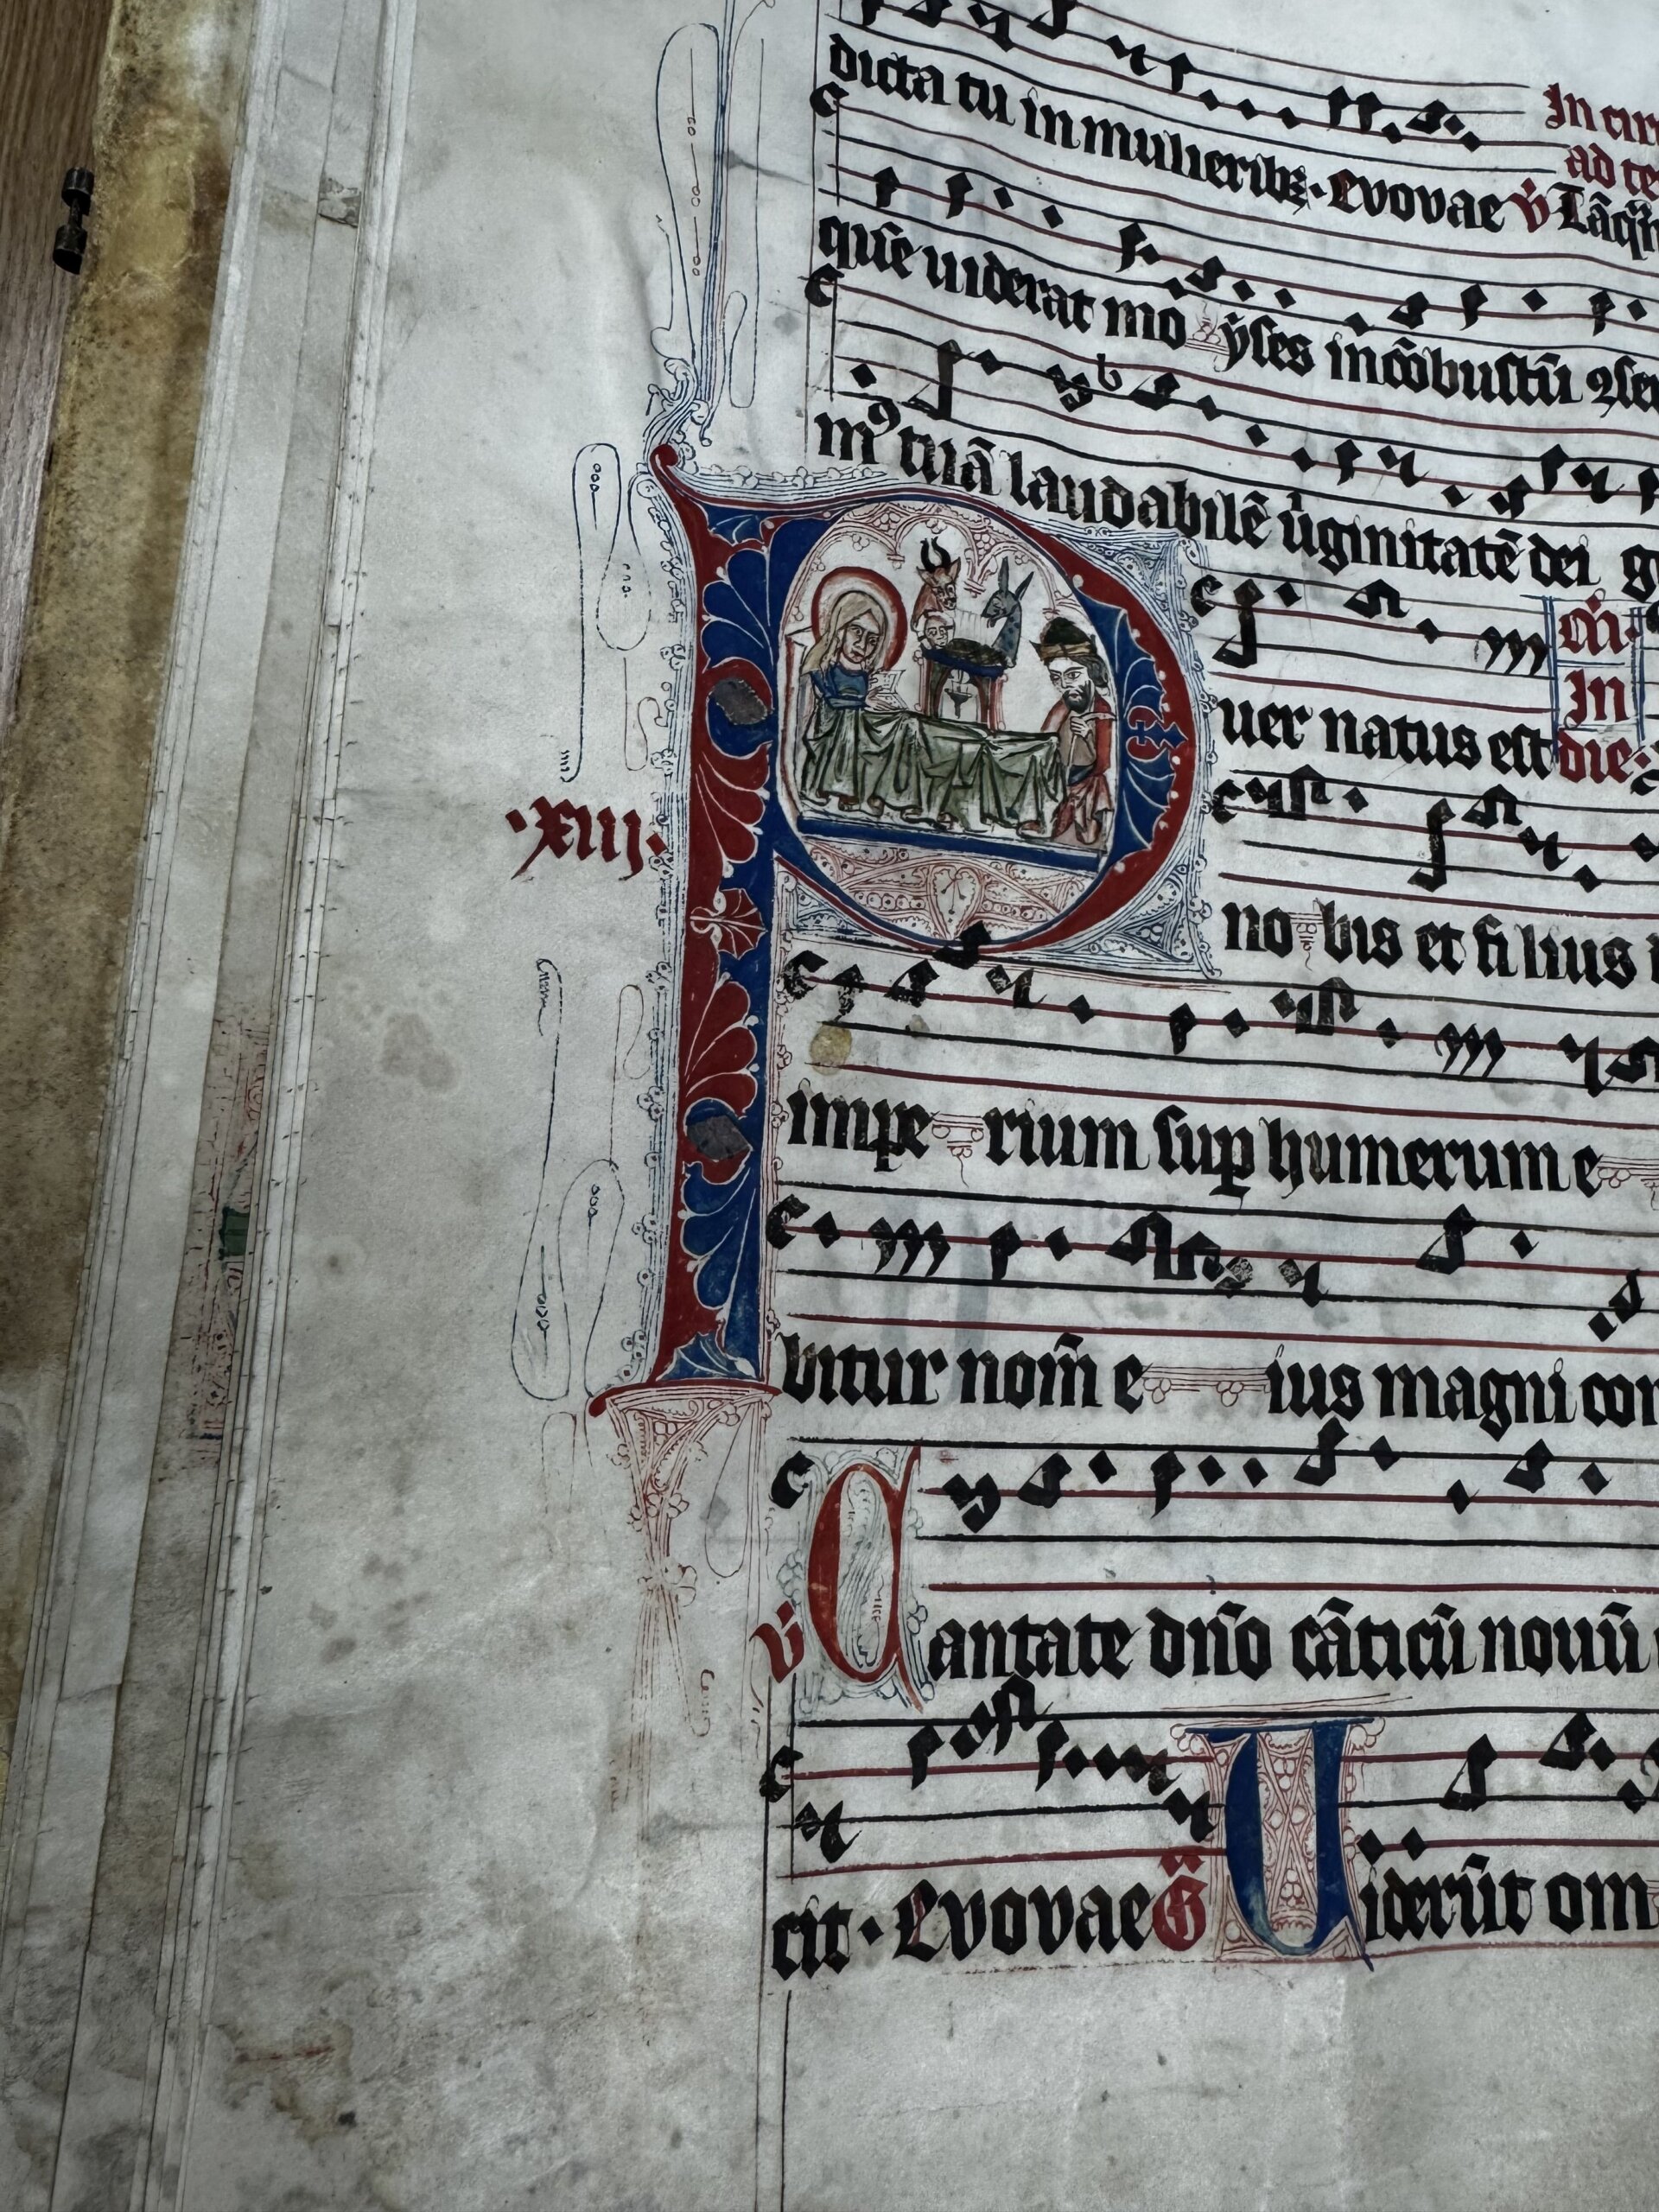 dicta tu in mulieribꝫ · Evovae v̇
In cir
ad te
quē uiderat mo yses incōbustū ꝯser
mꝰ tuā laudabilē v̇ginitatē dei g
P uer natus est
In
die
.xiij.
no bis et fi lius
impe rium suꝑ humerum e
bitur nom̄ e ius magni con
v̇ Cantate dn̄o cāticū nouū
cit · Evovae G̈ Uiderūt om